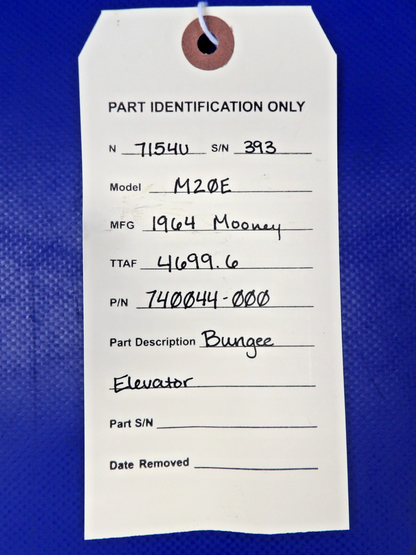 PART IDENTIFICATION ONLY
N 7154U S/N 393
Model M20E
MFG 1964 Mooney
TTAF 4699.6
P/N 740044-000
Part Description Bungee
Elevator
Part S/N
Date Removed